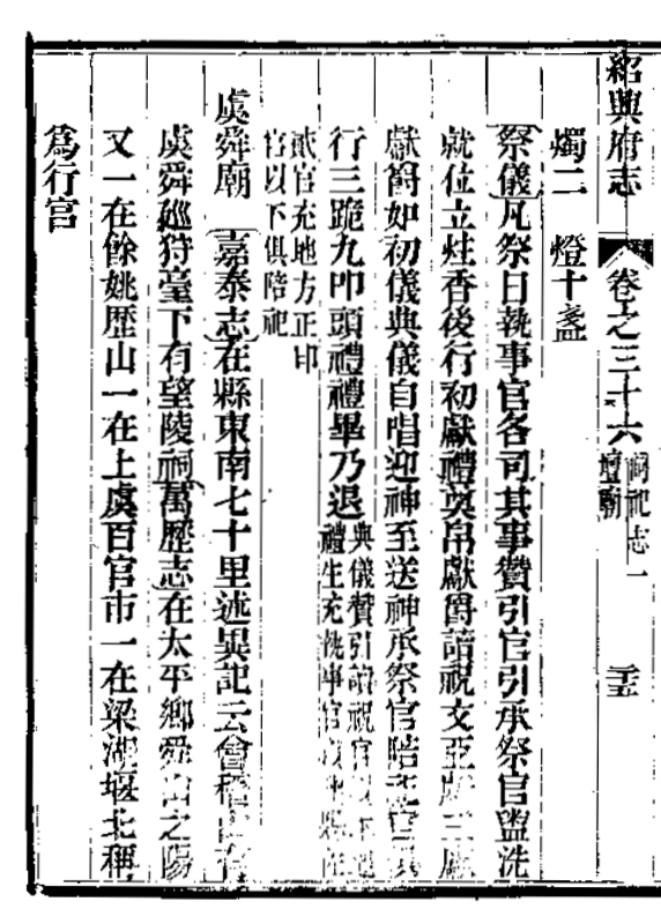 紹興府志 卷之三十六 祠祀志一 壇廟 三五
燭二 燈十盞
祭儀凡祭日執事官各司其事贊引官引承祭官盥洗
就位立炷香後行初獻禮奠帛獻爵讀祝文亞獻三獻
獻爵如初儀典儀自唱迎神至送神承祭官陪祀官俱
行三跪九叩頭禮禮畢乃退典儀贊引讀祝官以
禮生充執事官以
貳官充地方正印
官以下俱陪祀
虞舜廟 嘉泰志在縣東南七十里述異記云會稽山有
虞舜廵狩臺下有望陵祠萬歷志在太平鄉舜山之陽
又一在餘姚歷山一在上虞百官市一在梁湖堰北稱
爲行宫